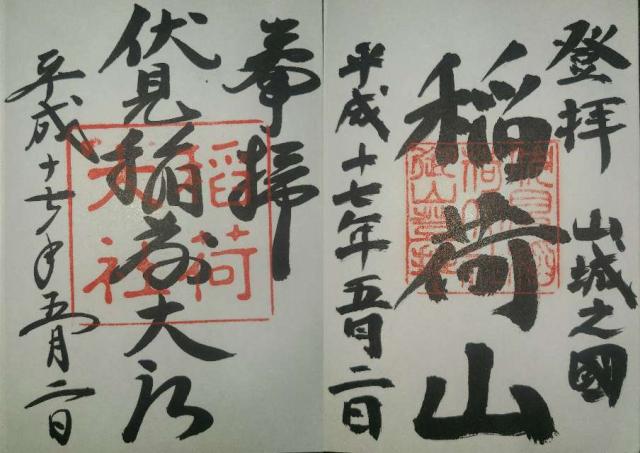 登拝 山城之國
稲荷山
平成十七年五月二日
奉拝
伏見稲荷大社
平成十七年五月二日
稲荷
大社